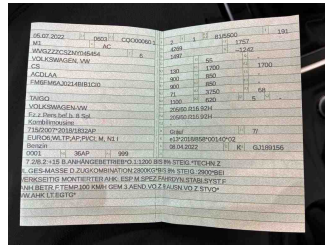 05.07.2022 0603 CQO00060 1
M1 AC
WVGZZZCSZMY045454 5
VOLKSWAGEN, VW
CS
ACDLAA
FM6FM6AJ0214BIB1CI0
TAIGO
VOLKSWAGEN, VW
Fz.z.Pers.bef.b. 8 Spl.
Kombilimousine
715/2007*2018/1832AP
EURO6;WLTP;AP;PI/CI, M, N1 I
Benzin
0001 36AP 999
2 1 81/5500 191
4269 1757
1697 -1242
- 55 -
150 1700 - 1700
900 850 -
900 850 -
71 3750 58
1100 620 5 -
205/60 R16 92H
205/60 R16 92H
Grün/ 7/
e1*2018/858*00140*02
08.04.2022 K GJ189156
7.2/8.2:+15 B.ANHÄNGEBETRIEB*O.1:1200 BIS 8% STEIG.*TECHN.Z
UL.GES-MASSE D.ZUGKOMBINATION:2800KG*BIS 8% STEIG.:2900*BEI
WERKSEITIG MONTIERTER AHK: ESP M.SPEZ.FAHRDYN.STABI.SYST.F
ANH.BETR.F.TEMP.100 KM/H GEM.3.AEND.VO.Z.9.AUSN.VO.Z.STVO*
WW.AHK LT.EGTG*